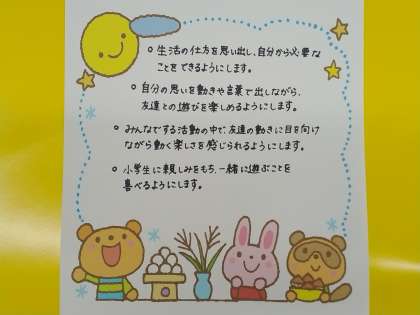 ○ 生活の仕方を思い出し、自分から必要な
ことをできるようにします。
○ 自分の思いを動きや言葉で出しながら、
友達との遊びを楽しめるようにします。
○ みんなでする活動の中で、友達の動きに目を向け
ながら動く楽しさを感じられるようにします。
○ 小学生に親しみをもち、一緒に遊ぶことを
喜べるようにします。